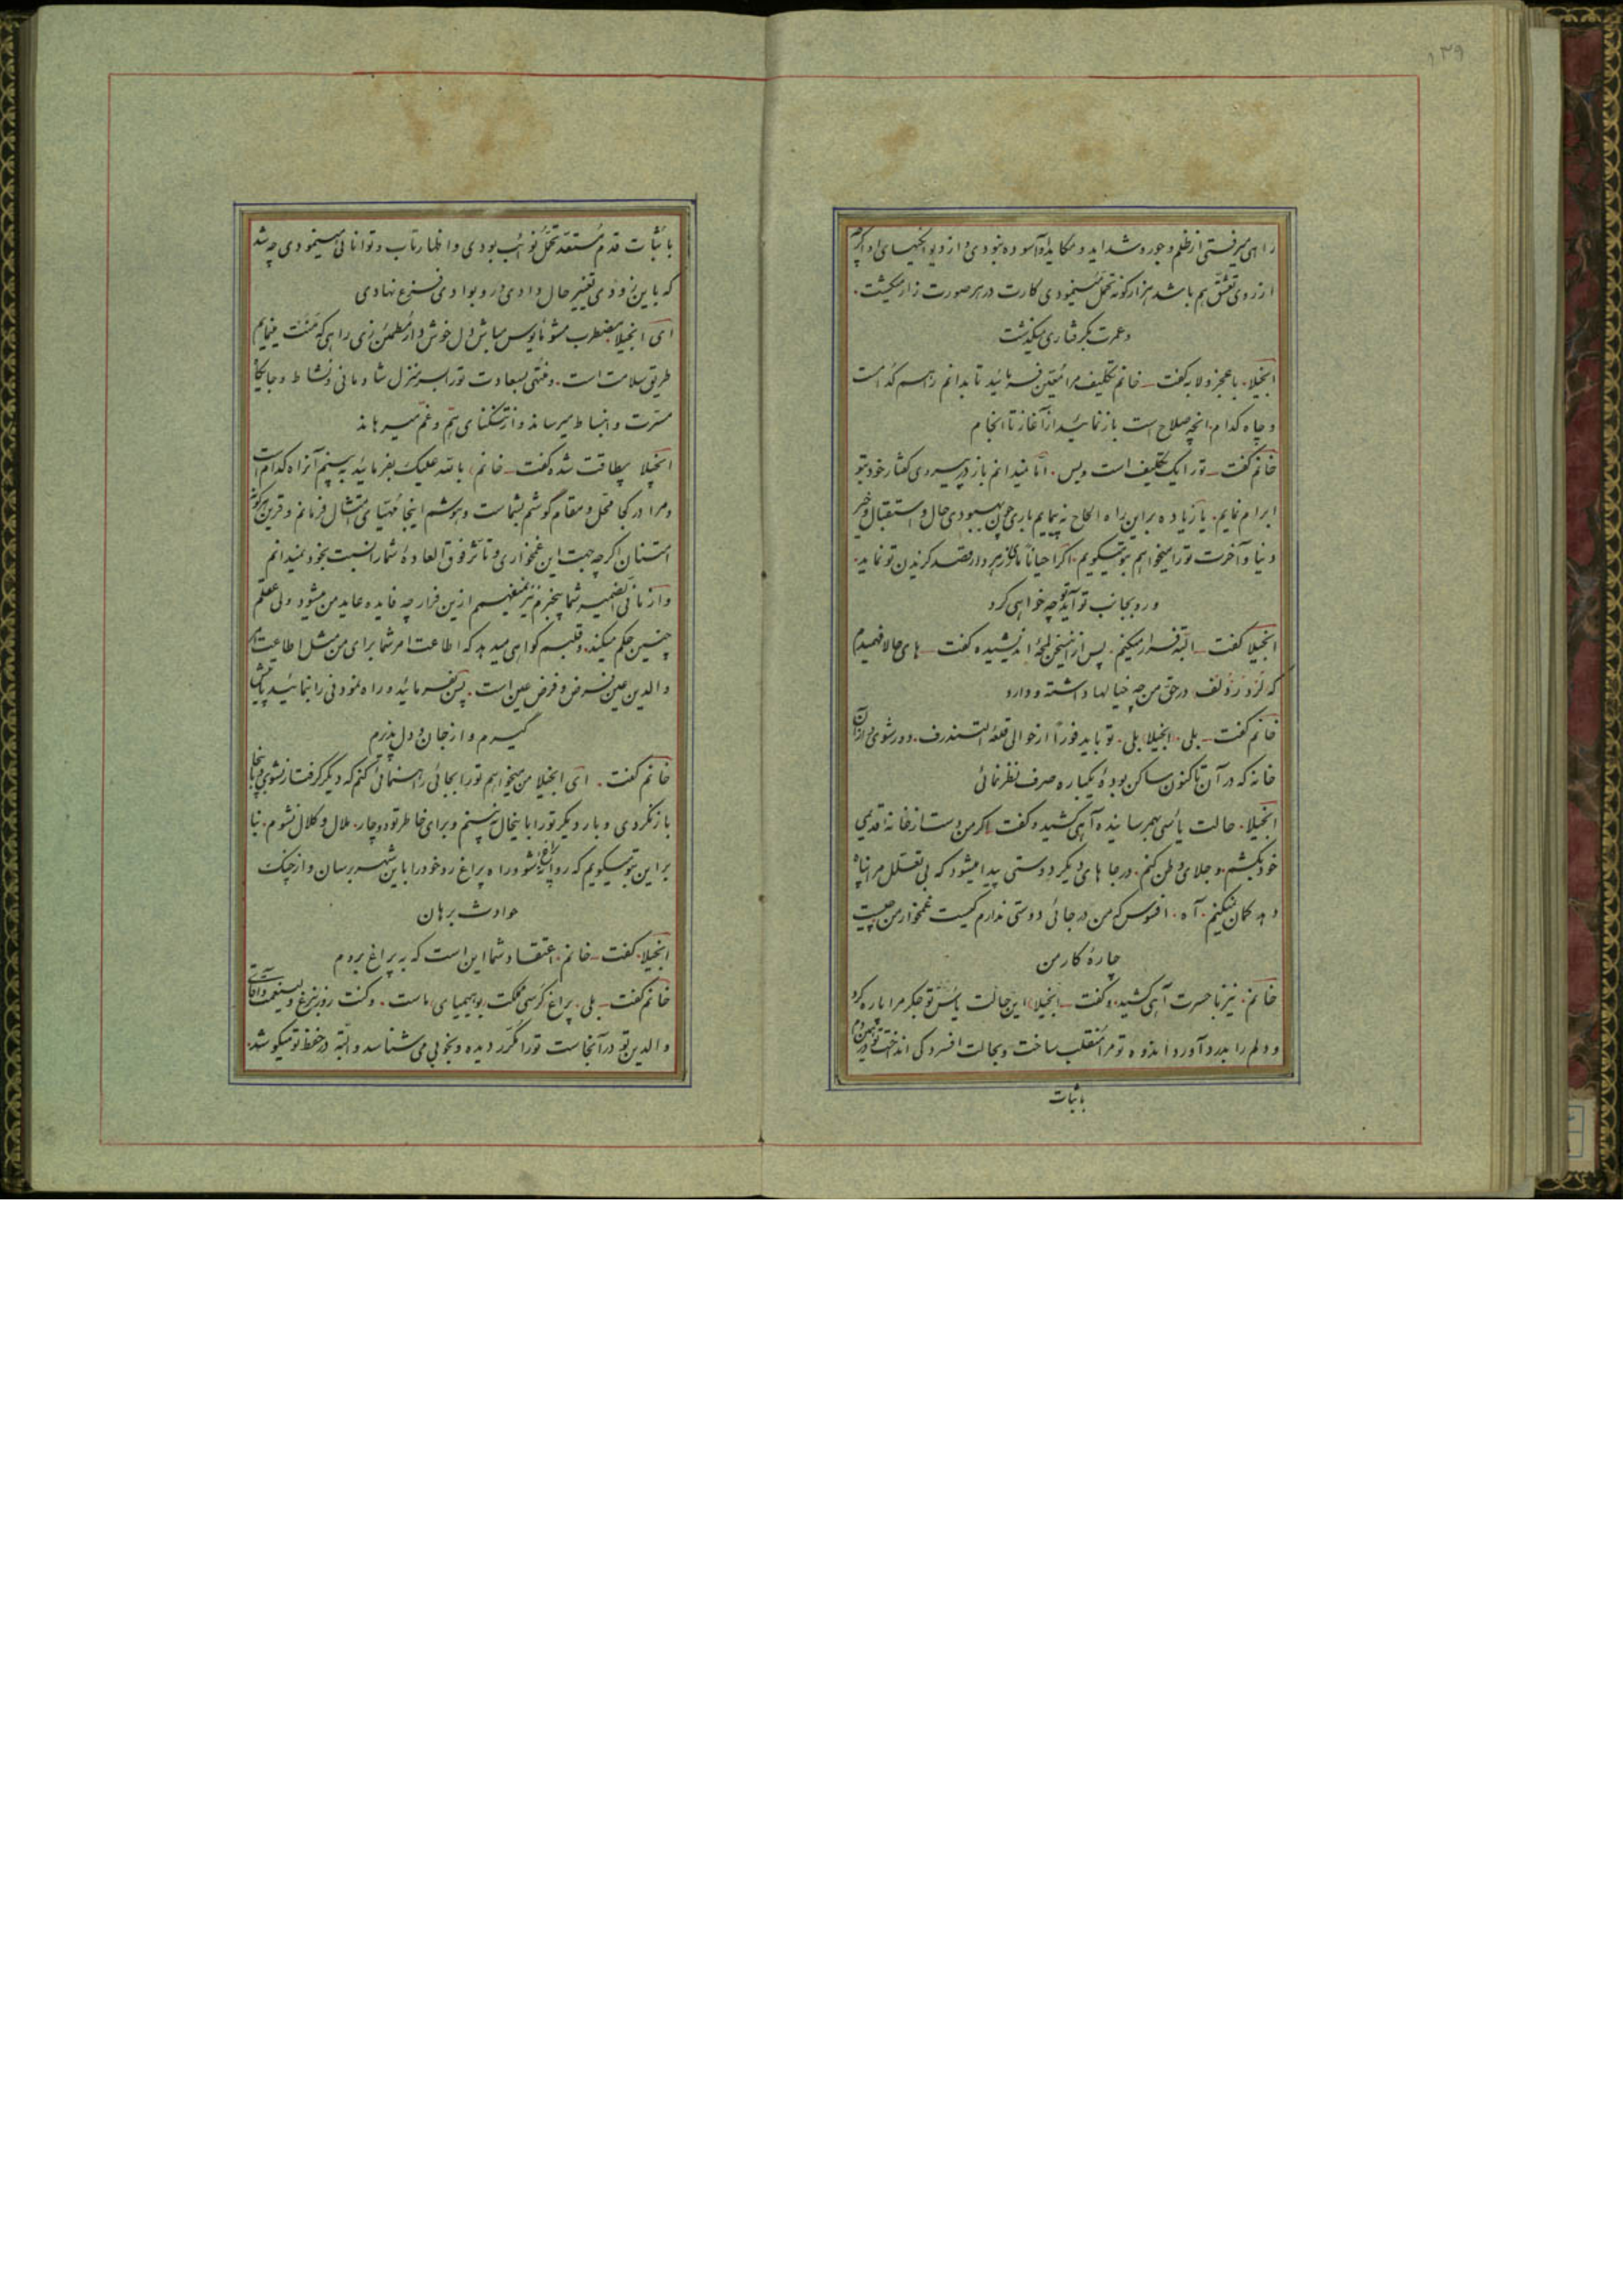 ۱۳۹
راهی میرفتی از ظلم و جور و شداید و مکاید او آسوده نبودی و از دیوانگیهای او اگرچه
از روی تعشق هم باشد هزار گونه تحمل مینمودی کارت در هر صورت زار میگشت.
و عمرت بگرفتاری میگذشت
انجیلا. با عجز و لابه گفت _ خانم تکلیف مرا معین فرمائید تا بدانم راهم کدام است
و چاه کدام. آنچه صلاح است باز نمائید از آغاز تا انجام
خانم گفت _ تو را یک تکلیف است و بس. اما نمیدانم باز در پیروی گفتار خود بتو
ابرام نمایم. یا زیاده بر این راه الحاح نه پیمایم باری چون بهبودی حال و استقبال و خیر
دنیا و آخرت تو را میخواهم بتو میگویم. اگر احیاناً ماری زهردار قصد گزیدن تو نماید.
و رو بجانب تو آید تو چه خواهی کرد
انجیلا گفت _ البته فرار میکنم. پس از این سخن لحظهٔ اندیشیده گفت _ های حالا فهمیدم
که لرد رزلف در حق من چه خیالها داشته و دارد
خانم گفت _ بلی. انجیلا بلی. تو باید فوراً از حوالی قلعهٔ التندرف. دور شوی و از آن
خانه که در آن تا کنون ساکن بودهٔ یکباره صرف نظر نمائی
انجیلا. حالت یأسی بهمرسانیده آهی کشید و گفت _ اگر من دست از خانهٔ قدیمی
خود بکشم. و جلای وطن کنم. در جاهای دیگر دوستی پیدا میشود که بی تعلل مرا پناه
دهد گمان نمیکنم. آه. افسوس که من در جائی دوستی ندارم کیست غمخوار من چیست
چارهٔ کار من
خانم. نیز با حسرت آهی کشید. و گفت _ انجیلا این حالت یأس تو جگر مرا پاره کرد
و دلم را بدرد آورد اندوه تو مرا منقلب ساخت و بحالت افسردگی انداخت تو همین دم
باثبات
باثبات قدم مستعد تحمل نوائب بودی و اظهار تاب و توانائی مینمودی چه شد
که باین زودی تغییر حال دادی و رو بوادی فزع نهادی
ای انجیلا مضطرب مشو مأیوس مباش دل خوش دار مطمئن زی راهی که منت مینمایم
طریق سلامت است. و منتهی بسعادت تو را بسر منزل شادمانی و نشاط و جایگاه
مسرت و انبساط میرساند و از تنگنای هم و غم میرهاند
انجیلا بیطاقت شده گفت _ خانم بالله علیک بفرمائید به بینم آن راه کدام است
و مرا در کجا محل و مقام گوشم بشماست و هوشم اینجا مهیای امتثال فرمانم و قرین هرگونه
امتنان اگرچه جهت این غمخواری و تأثر فوق العادهٔ شما را نسبت بخود نمیدانم
و از ما فی الضمیر شما بیخبرم نیز نمیفهمم از این فرار چه فایده عاید من میشود ولی عقلم
چنین حکم میکند. و قلبم گواهی میدهد که اطاعت امر شما برای من مثل اطاعت امر
والدین عین فرض و فرض عین است. پس بفرمائید و راه نمودنی را بنمائید تا پیش
گیرم و از جان و دل پذیرم
خانم گفت. ای انجیلا من میخواهم تو را بجائی راهنمائی کنم که دیگر گرفتار نشوی و باینجا
باز نگردی و بار دیگر تو را باینحال نه بینم و برای خاطر تو دوچار. ملال و کلال نشوم. بنا
بر این بتو میگویم که روانه شو و راه پراغ رو خود را باین شهر برسان و از چنگ
حوادث برهان
انجیلا. گفت _ خانم. اعتقاد شما این است که به پراغ بروم
خانم گفت _ بلی. پراغ کرسی مملکت بوهیمیای ماست. و کنت روزنبرغ ولینعمت و آقای
والدین تو در آنجاست تو را مکرر دیده و بخوبی می شناسد و البته در حفظ تو میکوشد.